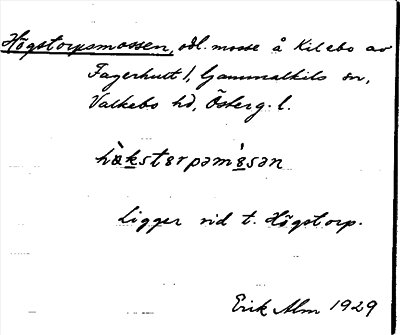 Högstorpsmossen, odl. mosse å Kilebo av
Fagerhult 1, Gammalkils sn,
Valkebo hd, Österg. l.
hɵ̀kstɵrpəmɵ́sən
Ligger vid t. Högstorp.
Erik Alm 1929